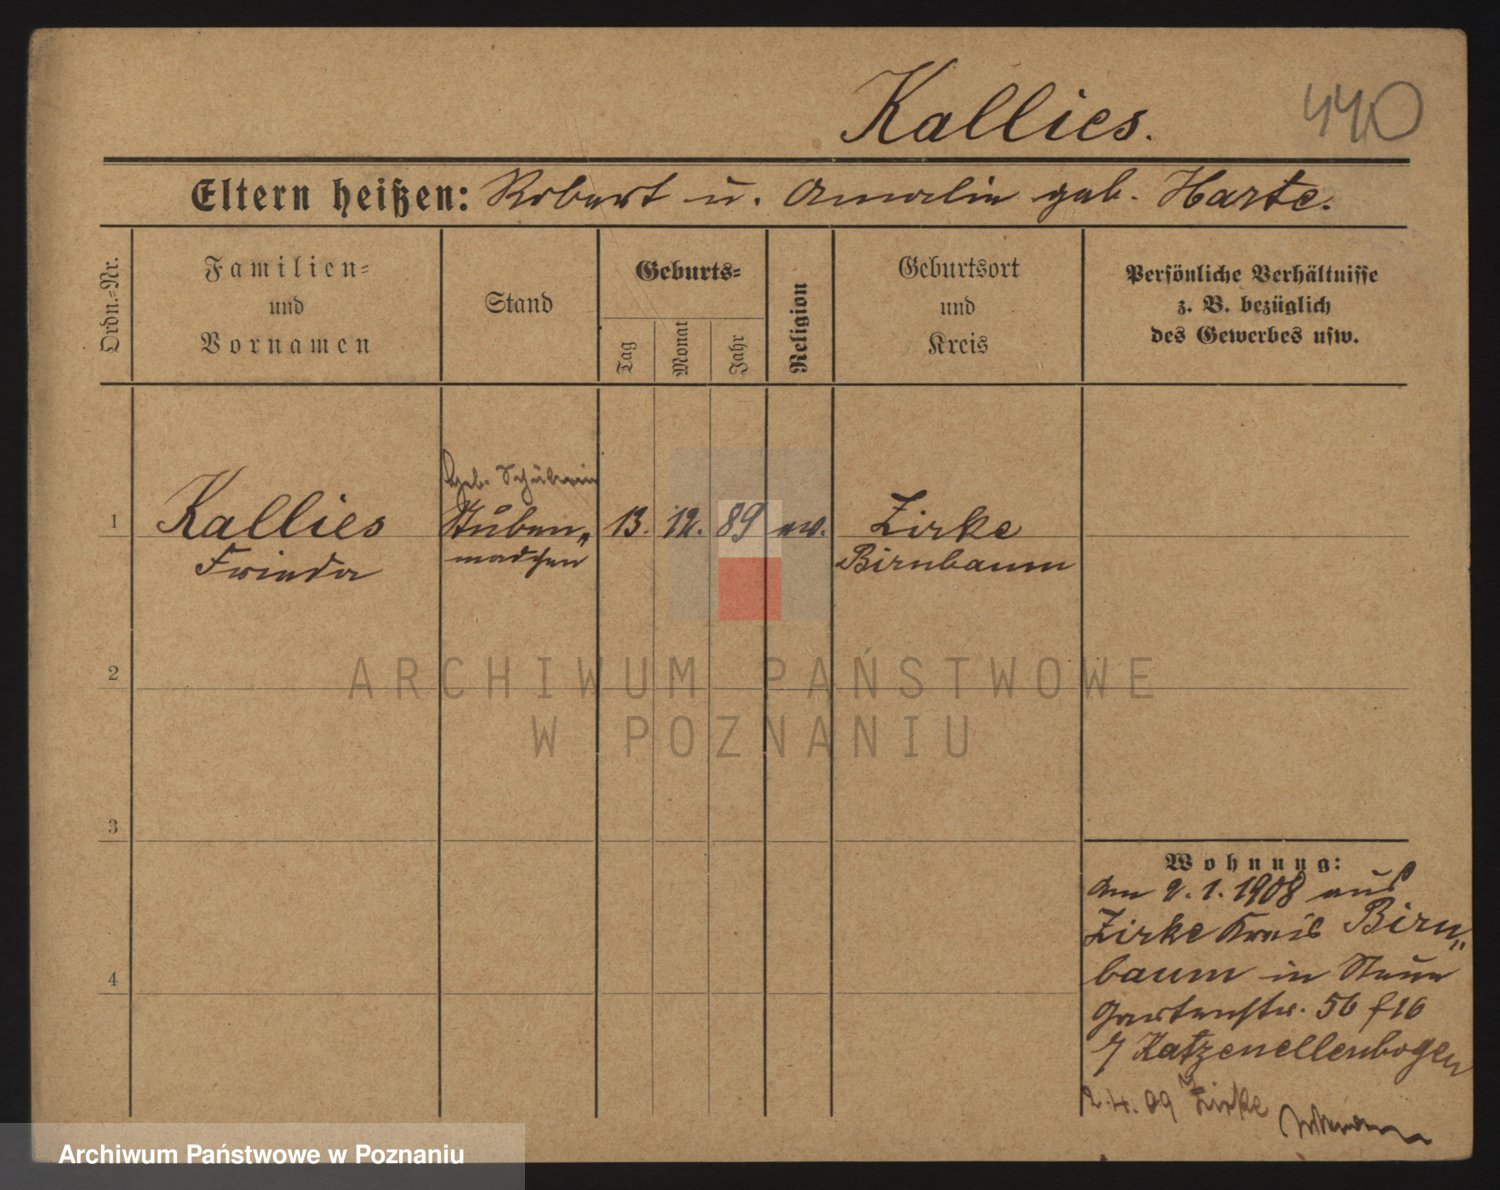 Kallies.
440
Eltern heißen: Robert u. Amalie geb. Harte.
Ordn.-Nr.
Familien-
und
Vornamen
Stand
Geburts-
Tag
Monat
Jahr
Religion
Geburtsort
und
Kreis
Persönliche Verhältnisse
z. B. bezüglich
des Gewerbes usw.
geb.
1 Kallies Stuben- 13. 12. 89 ev. Zirke
Frieda mädchen Birnbaum
2
3
4
Wohnung:
Am 2. 1. 1908 aus
Zirke Kreis Birn-
baum in
Gartenstr. 56
Katzenellenbogen
2.4.09 n Zirke
ARCHIWUM PAŃSTWOWE
W POZNANIU
Archiwum Państwowe w Poznaniu